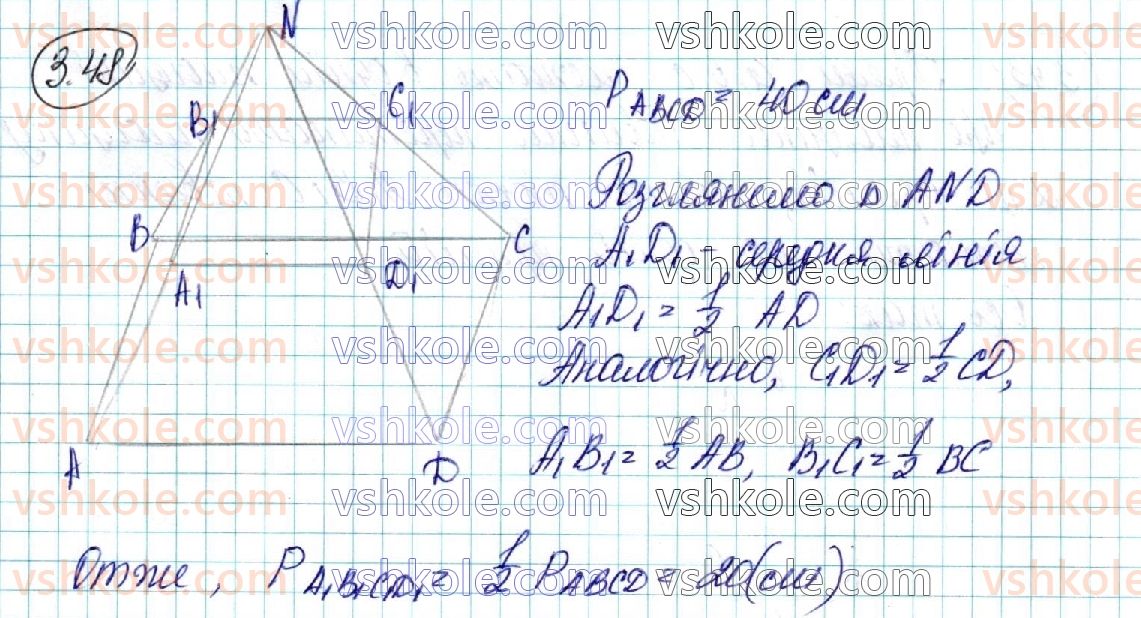 3.48
N
B₁ C₁
B C
A₁ D₁
A D
P ABCD = 40 см
Розглянемо Δ AND
A₁D₁ - середня лінія
A₁D₁ = 1/2 AD
Аналогічно, C₁D₁ = 1/2 CD,
A₁B₁ = 1/2 AB, B₁C₁ = 1/2 BC
Отже, P A₁B₁C₁D₁ = 1/2 P ABCD = 20 (см)
vshkole.com